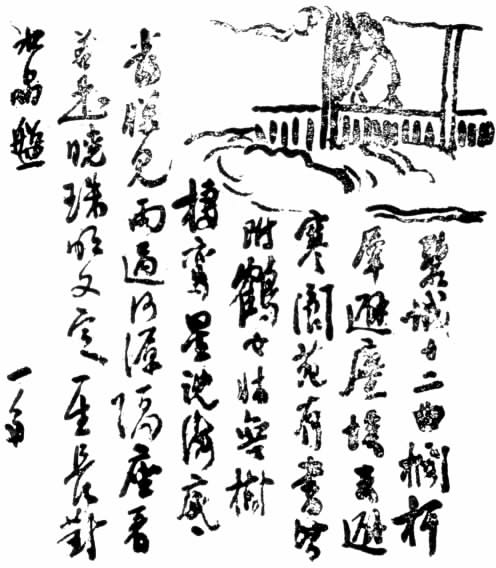 碧城十二曲欄杆
犀避塵埃玉避
寒閬苑有書
附鶴女牀無樹
棲鸞星沈海底
當牕見雨過河源隔座看
若是曉珠明又定一生長對
水晶盤